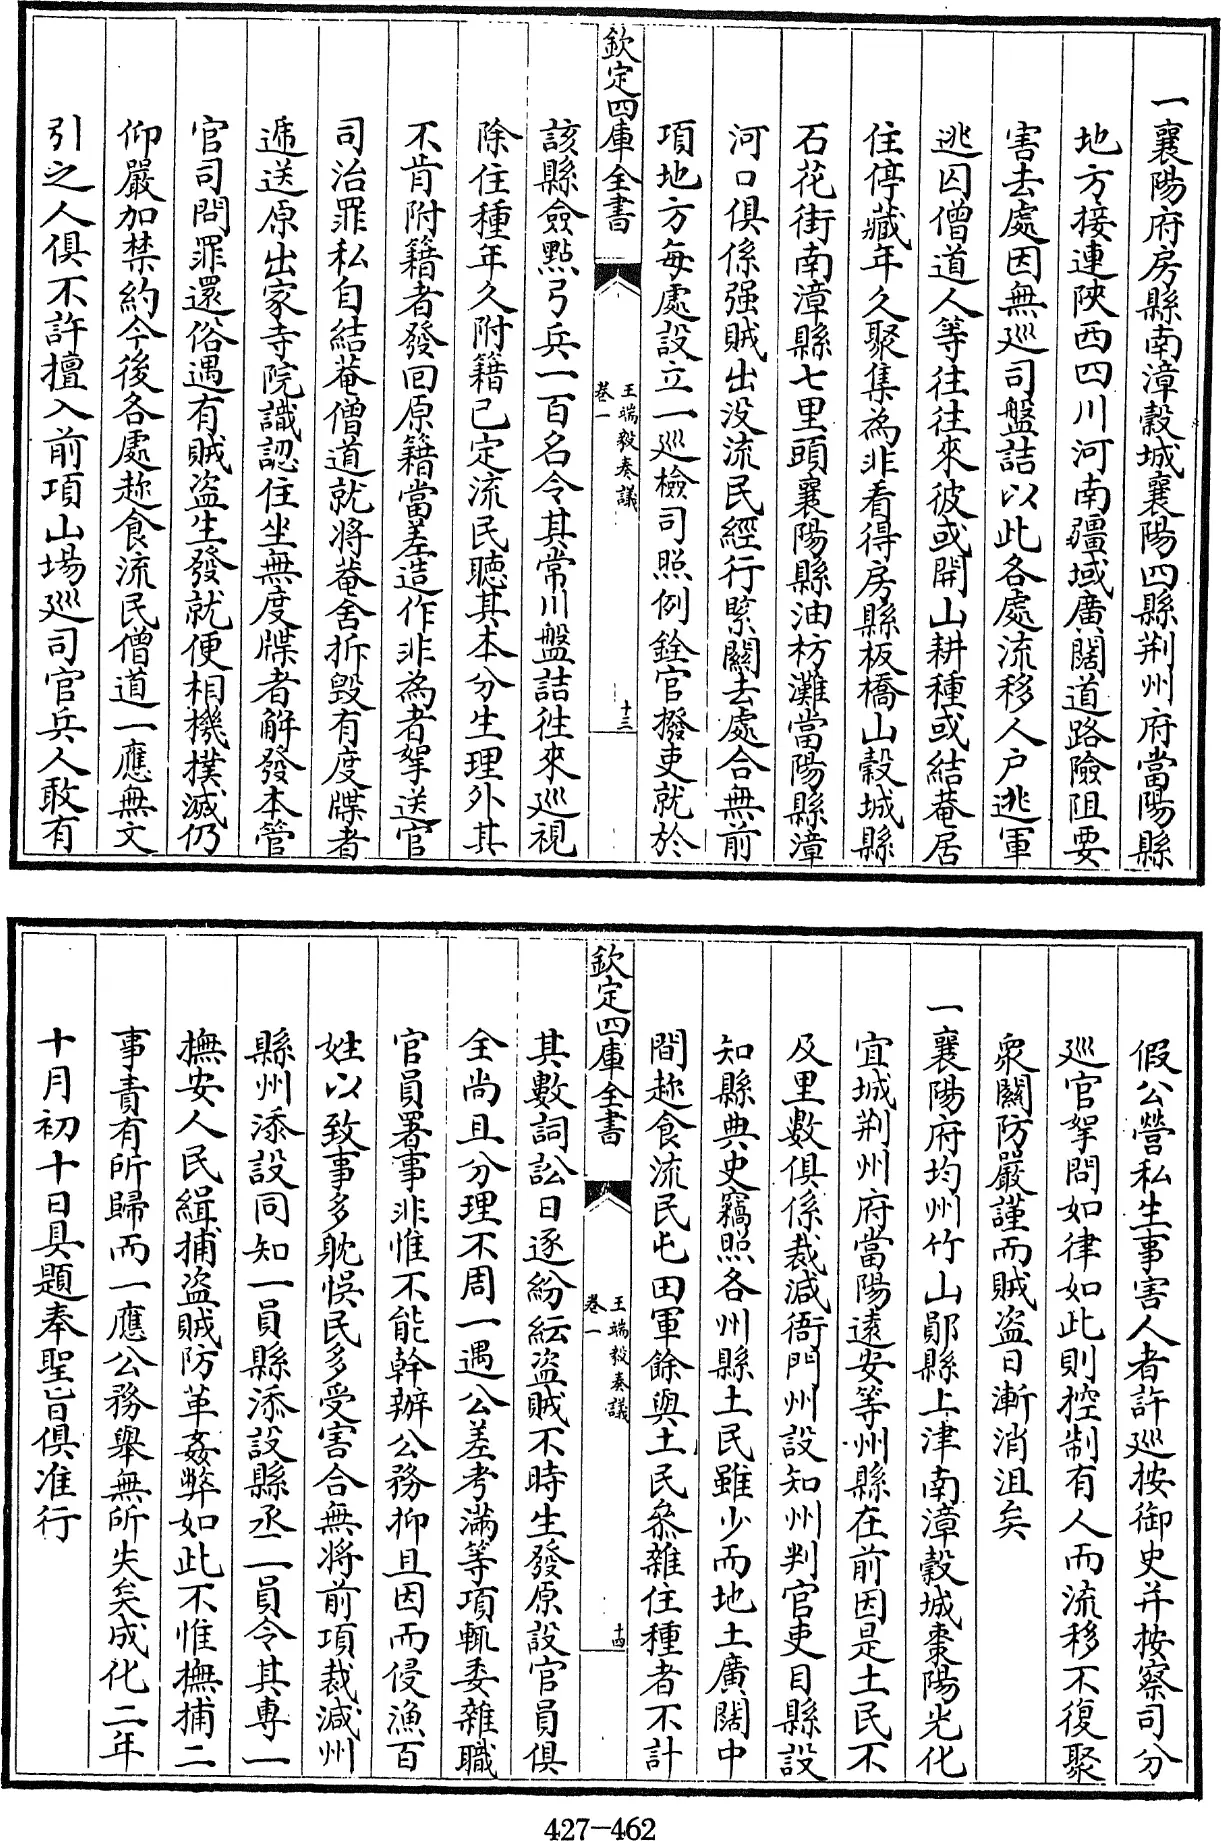 一襄陽府房縣南漳穀城襄陽四縣荆州府當陽縣
地方接連陜西四川河南疆域廣闊道路險阻要
害去處因無廵司盤詰以此各處流移人户逃軍
逃囚僧道人等往往來彼或開山耕種或結菴居
住停藏年久聚集為非看得房縣板橋山穀城縣
石花街南漳縣七里頭襄陽縣油坊灘當陽縣漳
河口俱係强賊出没流民經行緊關去處合無前
項地方每處設立一廵檢司照例銓官撥吏就於
欽定四庫全書
王端毅奏議
卷一
十三
該縣僉點弓兵一百名令其常川盤詰徃來廵視
除住種年久附籍已定流民聽其本分生理外其
不肯附籍者發回原籍當差造作非為者拏送官
司治罪私自結菴僧道就將菴舍拆毁有度牒者
遞送原出家寺院識認住坐無度牒者解發本管
官司問罪還俗遇有賊盗生發就便相機撲滅仍
仰嚴加禁約今後各處趂食流民僧道一應無文
引之人俱不許擅入前項山場廵司官兵人敢有
假公營私生事害人者許廵按御史并按察司分
廵官拏問如律如此則控制有人而流移不復聚
衆關防嚴謹而賊盗日漸消沮矣
一襄陽府均州竹山鄖縣上津南漳穀城棗陽光化
宜城荆州府當陽遠安等州縣在前因是土民不
及里數俱係裁減衙門州設知州判官吏目縣設
知縣典史竊照各州縣土民雖少而地土廣闊中
間趂食流民屯田軍餘與土民叅雜住種者不計
欽定四庫全書
王端毅奏議
卷一
十四
其數詞訟日逐紛紜盗賊不時生發原設官員俱
全尚且分理不周一遇公差考滿等項輒委雜職
官員署事非惟不能幹辦公務抑且因而侵漁百
姓以致事多躭悞民多受害合無將前項裁減州
縣州添設同知一員縣添設縣丞一員令其專一
撫安人民緝捕盗賊防革姦弊如此不惟撫捕二
事責有所歸而一應公務舉無所失矣成化二年
十月初十日具題奉聖旨俱准行
427—462